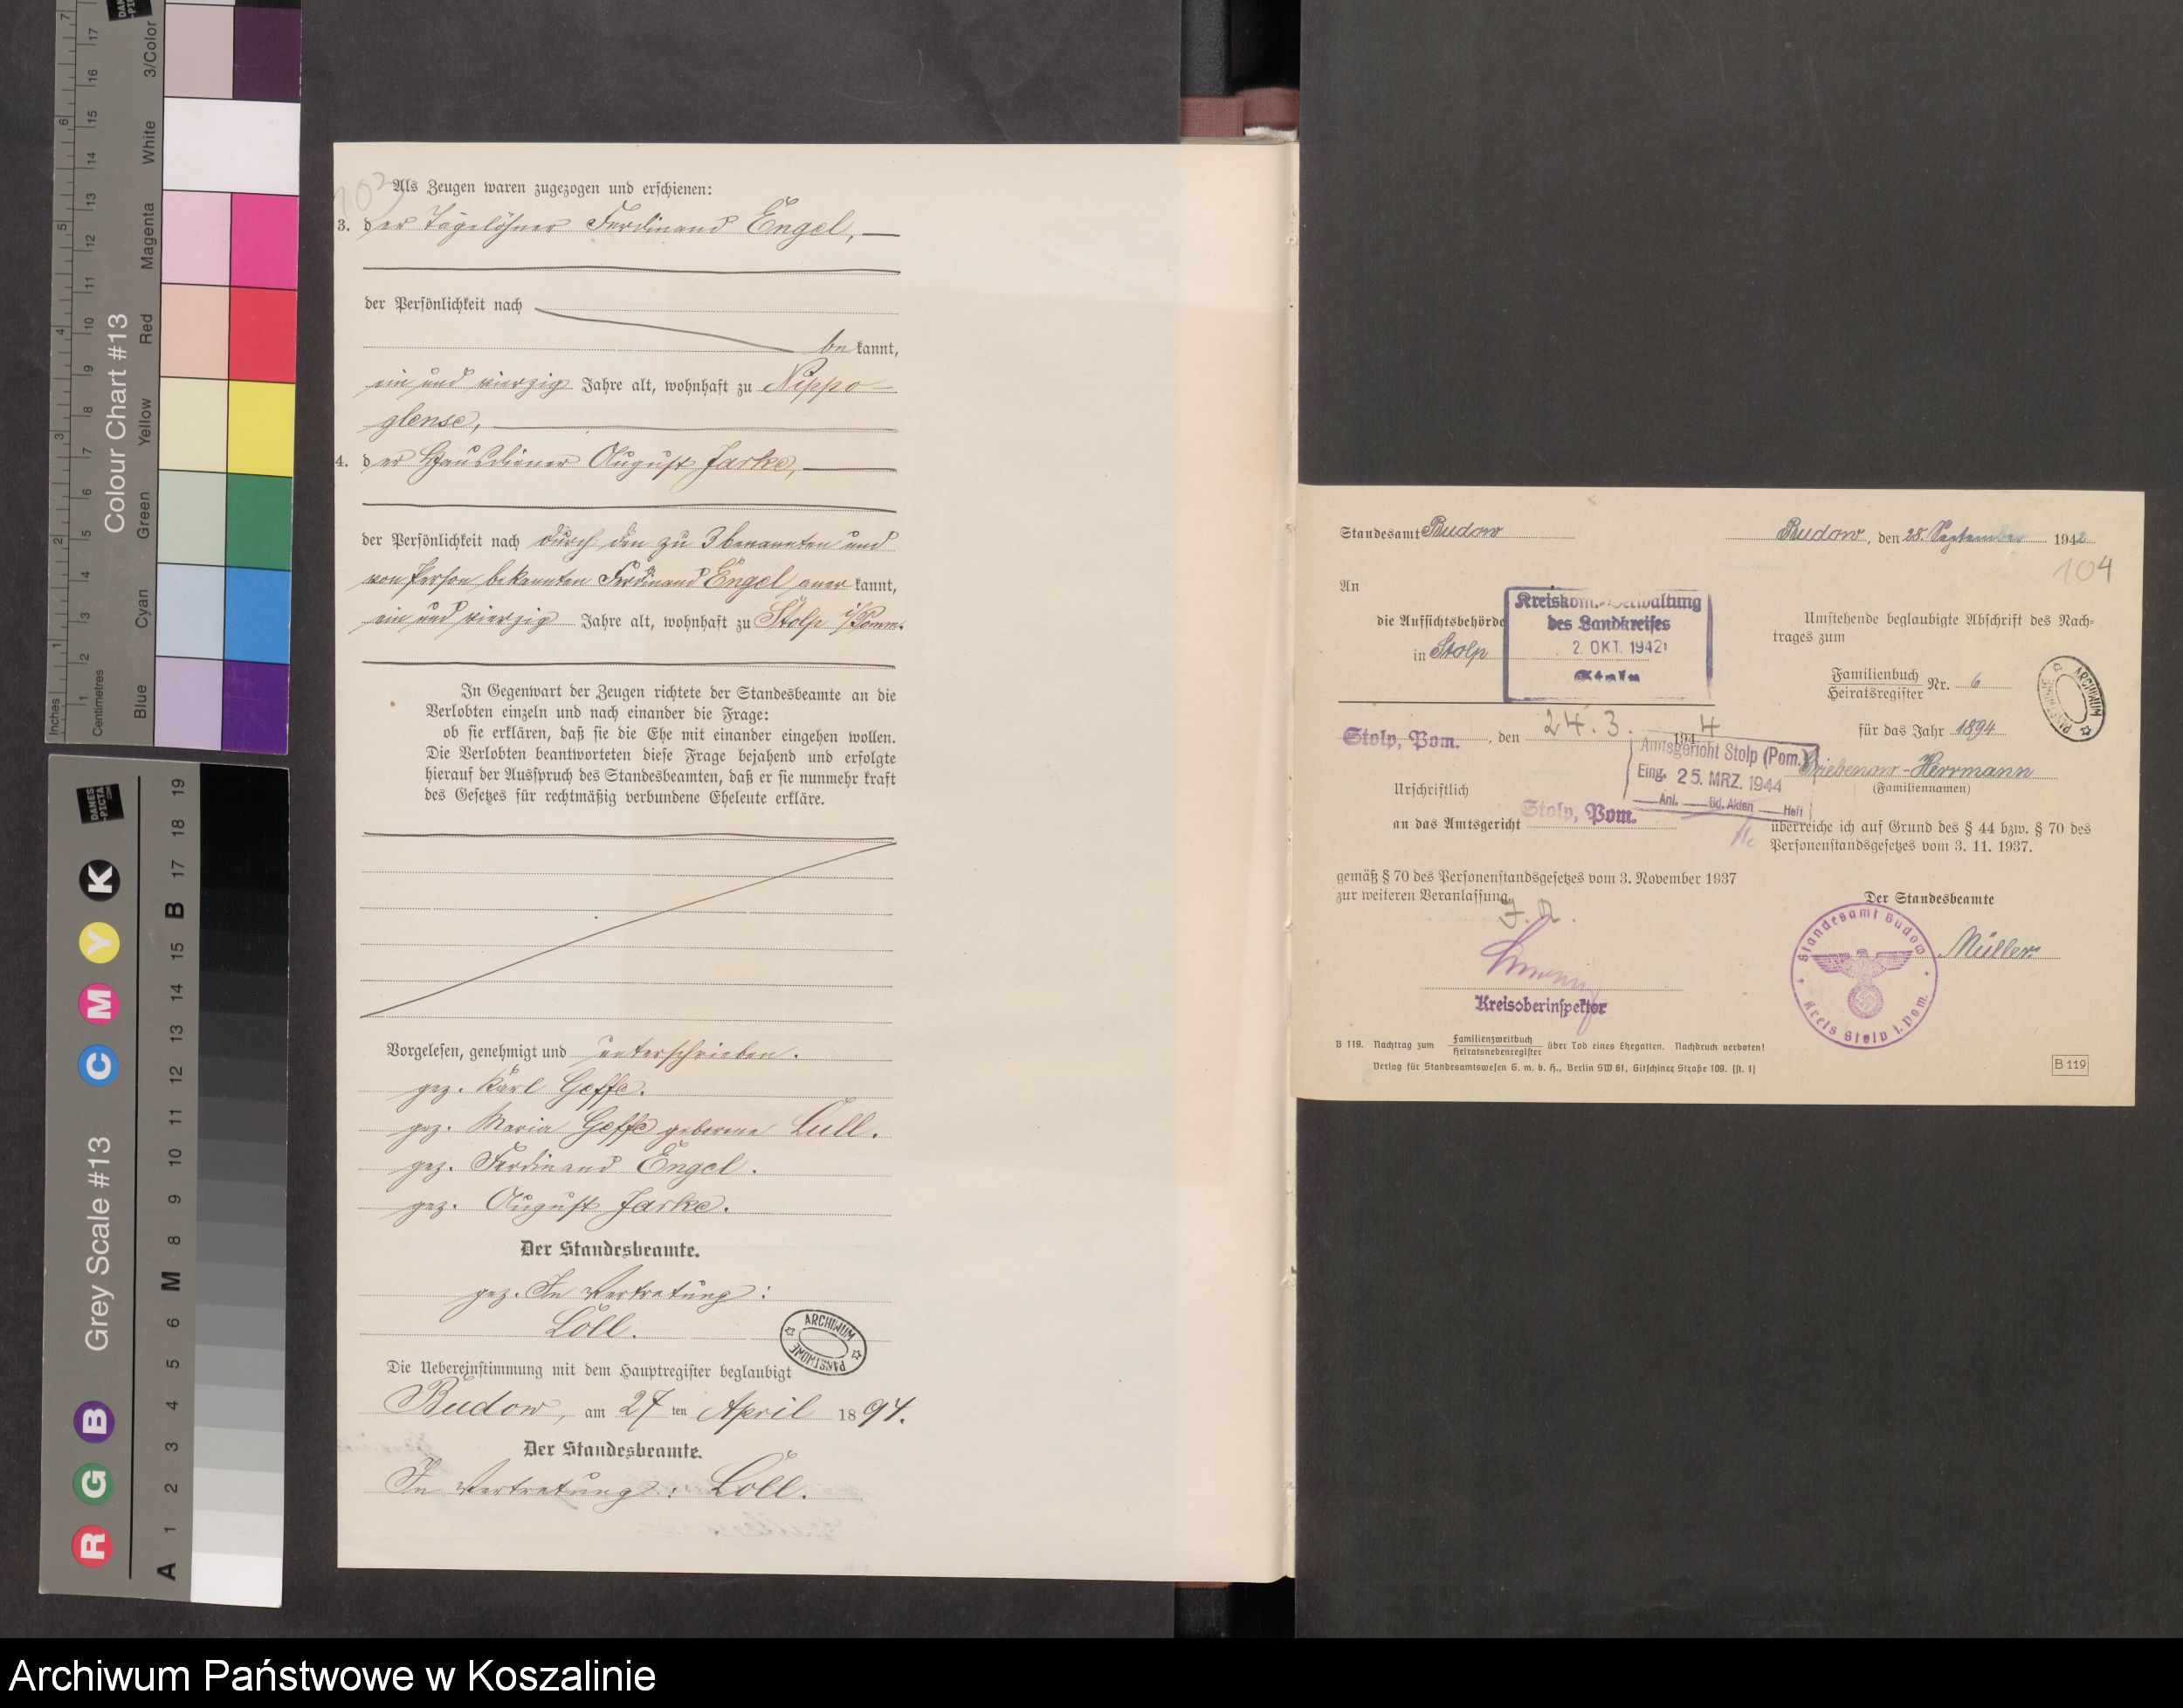 Als Zeugen waren zugezogen und erschienen:
3. der Tagelöhner Ferdinand Engel,
der Persönlichkeit nach
be kannt,
ein und vierzig Jahre alt, wohnhaft zu Nippo-
glense,
4. der Hausdiener August Jarke,
der Persönlichkeit nach durch den zu 3 benannten und
von Person bekannten Ferdinand Engel aner kannt,
ein und vierzig Jahre alt, wohnhaft zu Stolp i/Pomm.
In Gegenwart der Zeugen richtete der Standesbeamte an die
Verlobten einzeln und nach einander die Frage:
ob sie erklären, daß sie die Ehe mit einander eingehen wollen.
Die Verlobten beantworteten diese Frage bejahend und erfolgte
hierauf der Ausspruch des Standesbeamten, daß er sie nunmehr kraft
des Gesetzes für rechtmäßig verbundene Eheleute erkläre.
Vorgelesen, genehmigt und unterschrieben.
gez. Karl Geffe.
gez. Maria Geffe geborene Lüll.
gez. Ferdinand Engel.
gez. August Jarke.
Der Standesbeamte.
gez. In Vertretung:
Löll.
ARCHIWUM PAŃSTWOWE
Die Uebereinstimmung mit dem Hauptregister beglaubigt
Budow, am 27 ten April 1894.
Der Standesbeamte.
In Vertretung: Löll.
Standesamt Budow
Budow, den 28. September 1942
104
An
die Aufsichtsbehörde
in Stolp
Kreiskom.-Verwaltung
des Landkreises
2. OKT. 1942
Stolp
Umstehende beglaubigte Abschrift des Nach-
trages zum
Familienbuch
Heiratsregister Nr. 6
für das Jahr 1894
ARCHIWUM PAŃSTWOWE
Stolp, Pom., den 24. 3. 1944
Amtsgericht Stolp (Pom.)
Eing. 25. MRZ. 1944
Anl. Bd. Akten Heft
Griebenow-Herrmann
(Familiennamen)
Urschriftlich
an das Amtsgericht Stolp, Pom.
überreiche ich auf Grund des § 44 bzw. § 70 des
Personenstandsgesetzes vom 3. 11. 1937.
gemäß § 70 des Personenstandsgesetzes vom 3. November 1937
zur weiteren Veranlassung.
Der Standesbeamte
Müller
Standesamt Budow
Kreis Stolp i. Pom.
Kreisoberinspektor
B 119. Nachtrag zum Familienzweitbuch
Heiratsnebenregister über Tod eines Ehegatten. Nachdruck verboten!
Verlag für Standesamtswesen G. m. b. H., Berlin SW 61, Gitschiner Straße 109. (st. 1)
B 119
Colour Chart #13
Inches
Centimetres
Blue
Cyan
Green
Yellow
Red
Magenta
White
3/Color
Grey Scale #13
R G B C M Y K
A 1 2 3 4 5 6 M 8 9 10 11 12 13 14 15 B 17 18 19
DANES
PICTA
Archiwum Państwowe w Koszalinie